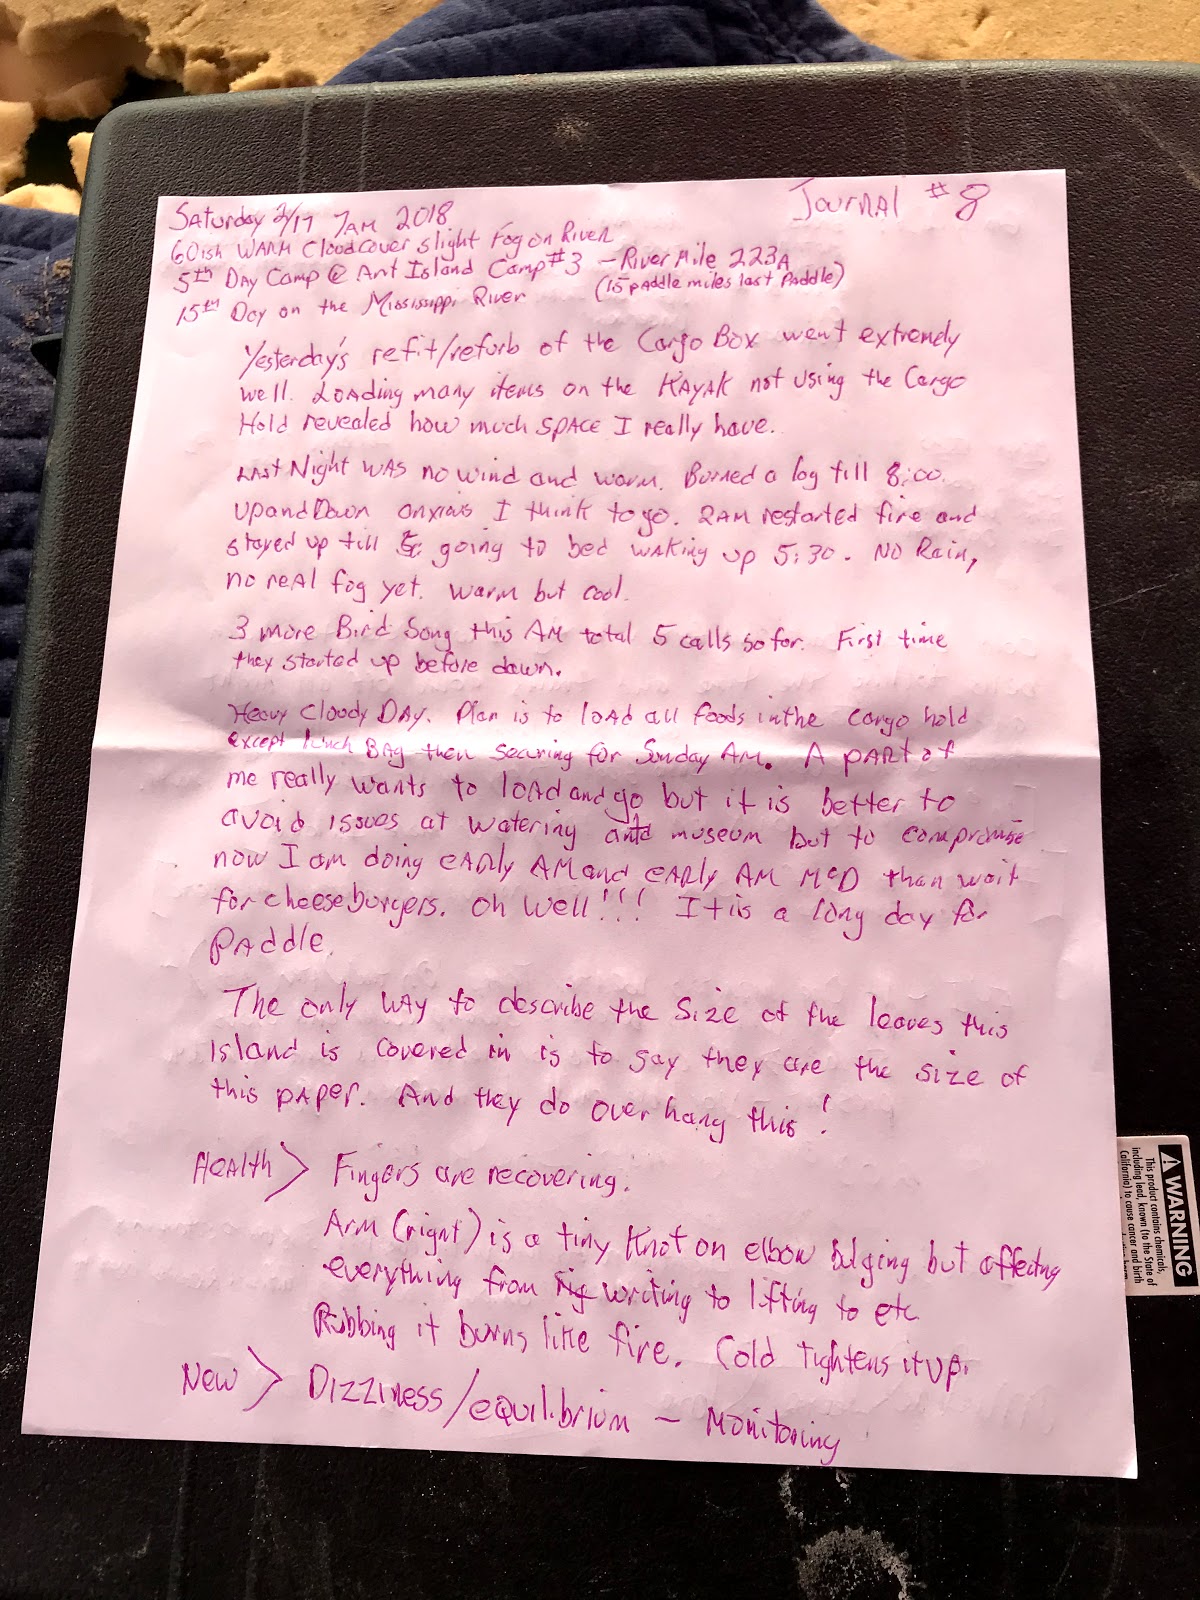 Journal #8
Saturday 2/17 7AM 2018
60ish WARM Cloudcover slight Fog on River
5th Day Camp @ Ant Island Camp #3 - River Mile 223A
(15 paddle miles last Paddle)
15th Day on the Mississippi River
Yesterday's refit/refurb of the Cargo Box went extremly
well. Loading many items on the KAYAK not using the Cargo
Hold revealed how much SPACE I really have.
Last Night WAS no wind and warm. Burned a log till 8:00.
Up and Down anxious I think to go. 2AM restarted fire and
stayed up till going to bed waking up 5:30. No Rain,
no real fog yet. Warm but cool.
3 more Bird Song this AM total 5 calls so far. First time
they started up before dawn.
Heavy Cloudy DAY. Plan is to load all foods in the cargo hold
except lunch BAg then securing for Sunday AM. A part of
me really wants to load and go but it is better to
avoid issues at watering and museum but to compromise
now I am doing early AM and early AM McD than wait
for cheeseburgers. Oh Well!!! It is a long day for
Paddle.
The only way to describe the size of the leaves this
Island is covered in is to say they are the size of
this paper. And they do over hang this!
Health > Fingers are recovering.
Arm (right) is a tiny Knot on elbow bulging but affecting
everything from writing to lifting to etc
Rubbing it burns like fire. Cold tightens it up.
New > Dizziness/equilibrium - Monitoring
WARNING
This product contains chemicals,
including lead, known (to the State of
California) to cause cancer and birth